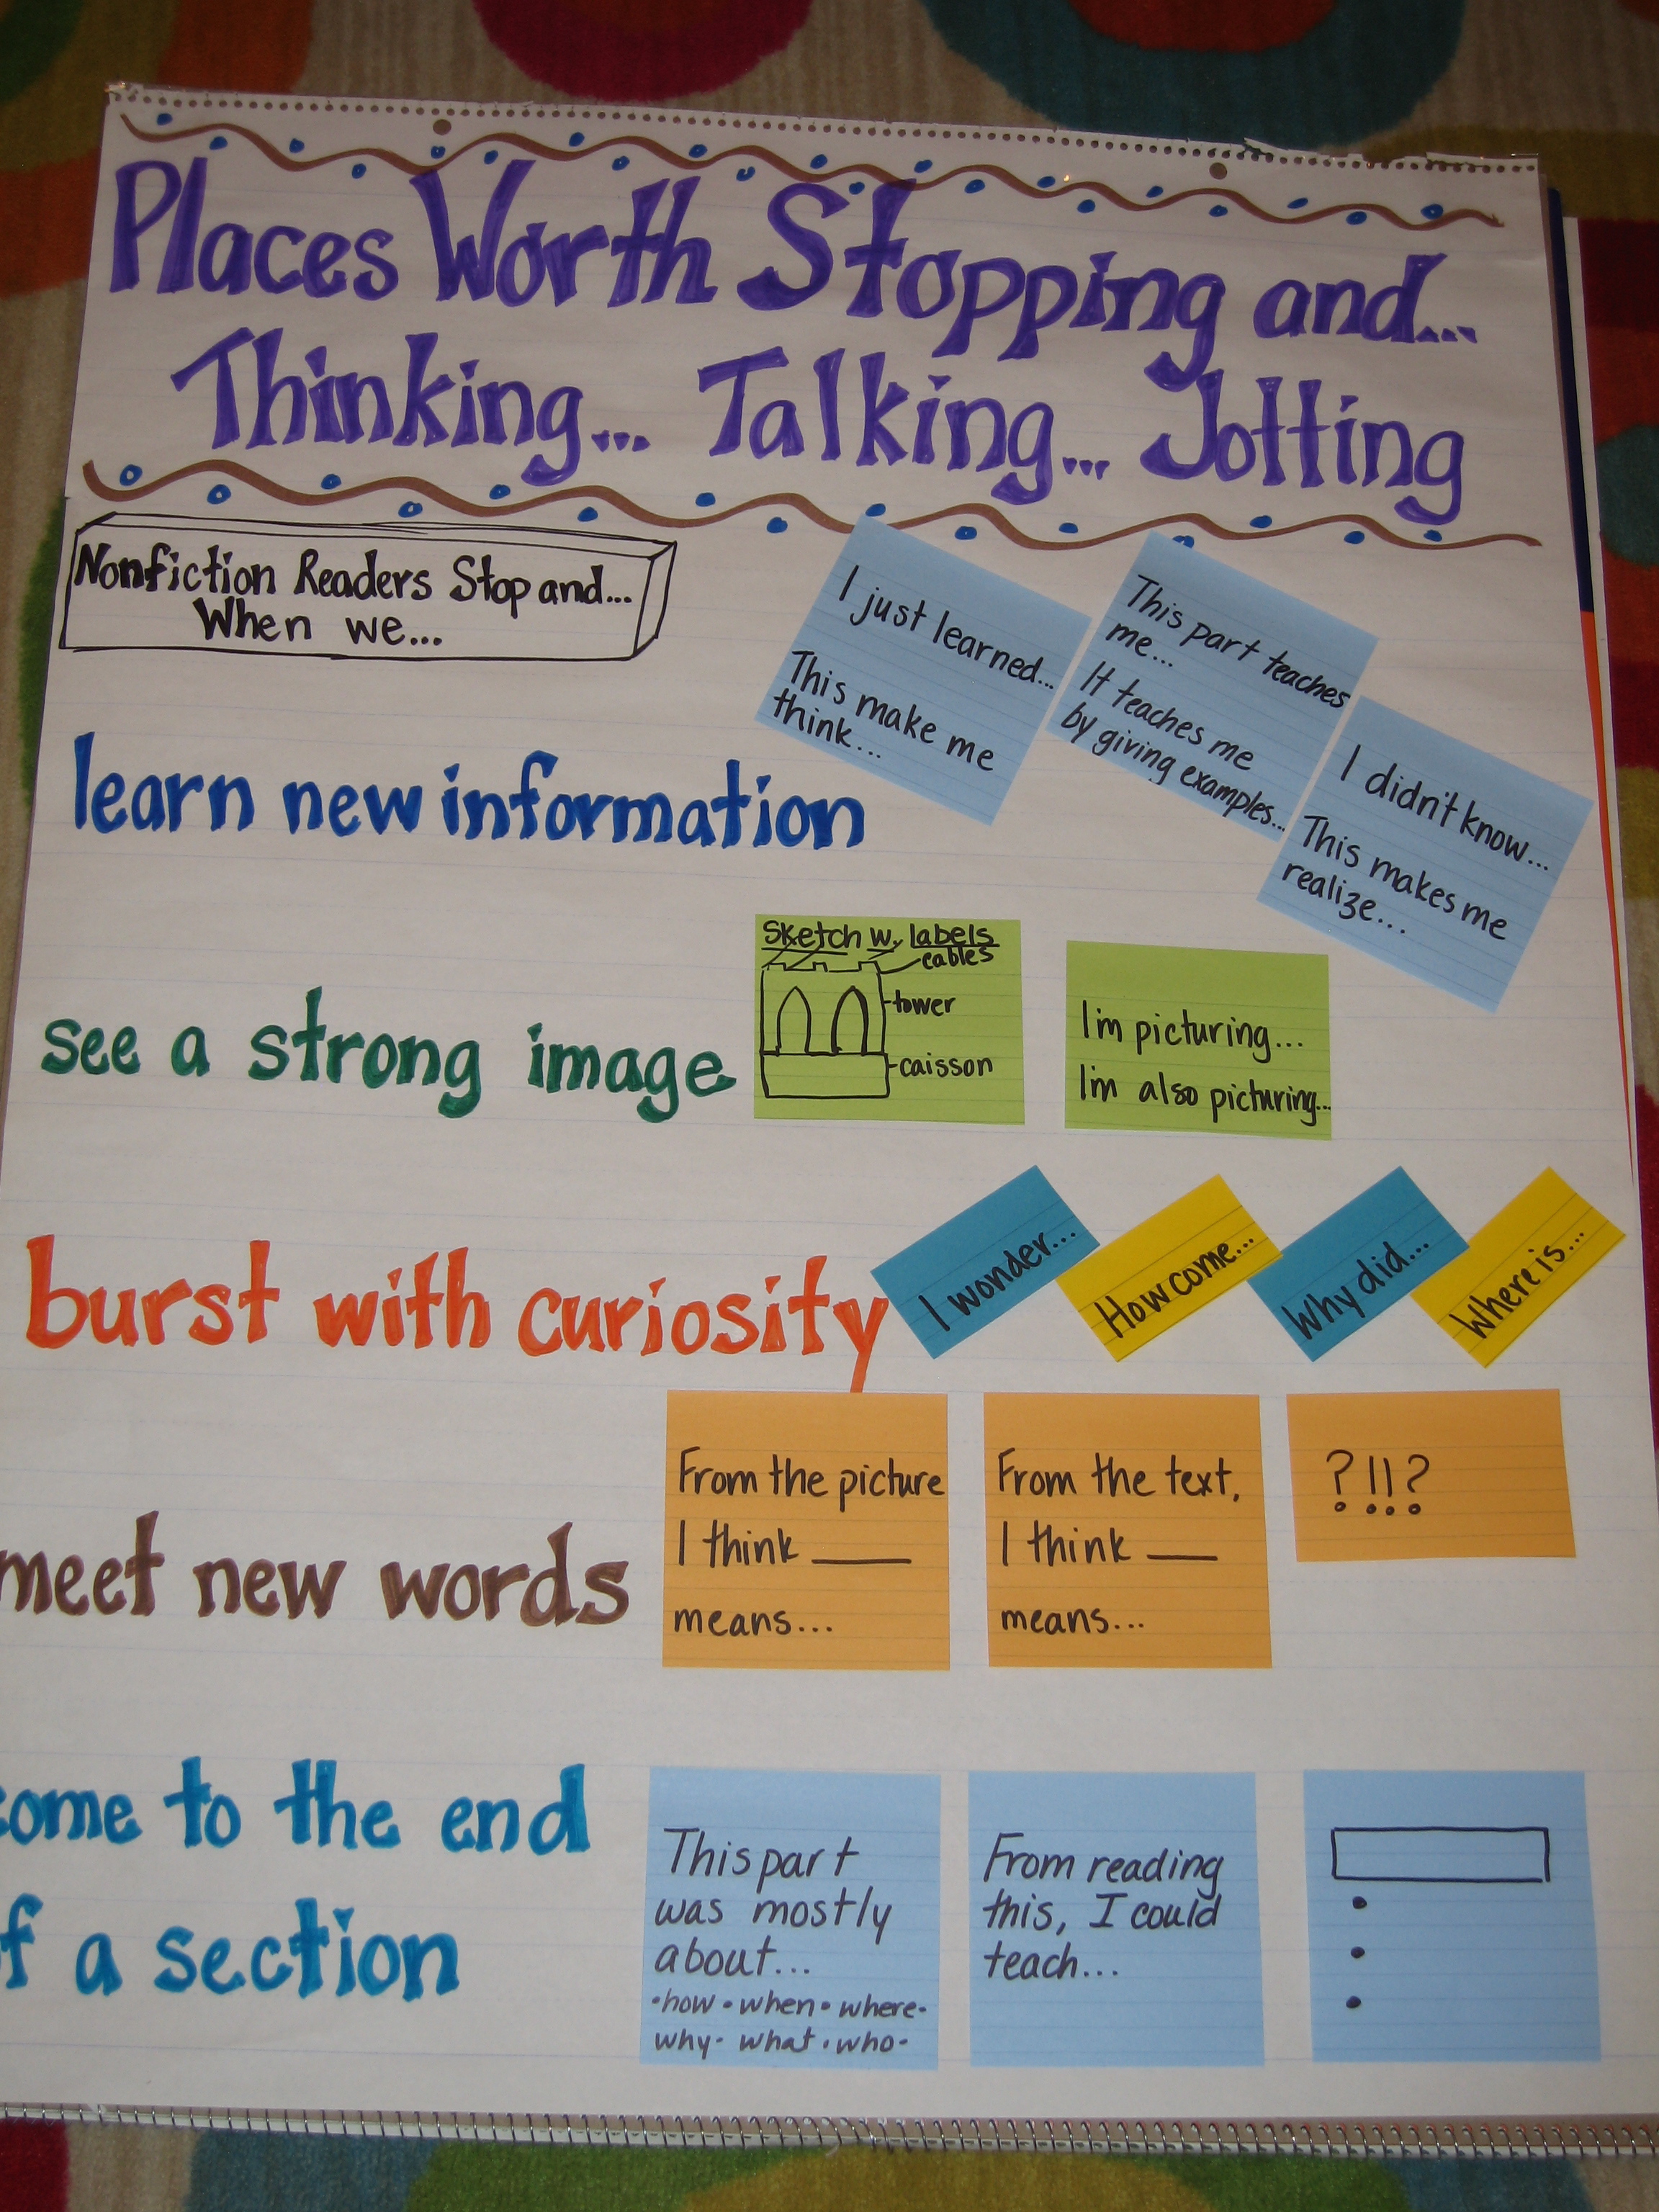 Places Worth Stopping and...
Thinking... Talking... Jotting
Nonfiction Readers Stop and...
When we...
learn new information
I just learned...
This make me
think...
This part teaches
me...
It teaches me
by giving examples...
I didn't know...
This makes me
realize...
see a strong image
Sketch w. labels
cables
tower
caisson
I'm picturing...
I'm also picturing...
burst with curiosity
I wonder...
How come...
Why did...
Where is...
meet new words
From the picture
I think ____
means...
From the text,
I think ___
means...
?!!?
come to the end
of a section
This part
was mostly
about...
•how •when• where•
why• what •who•
From reading
this, I could
teach...